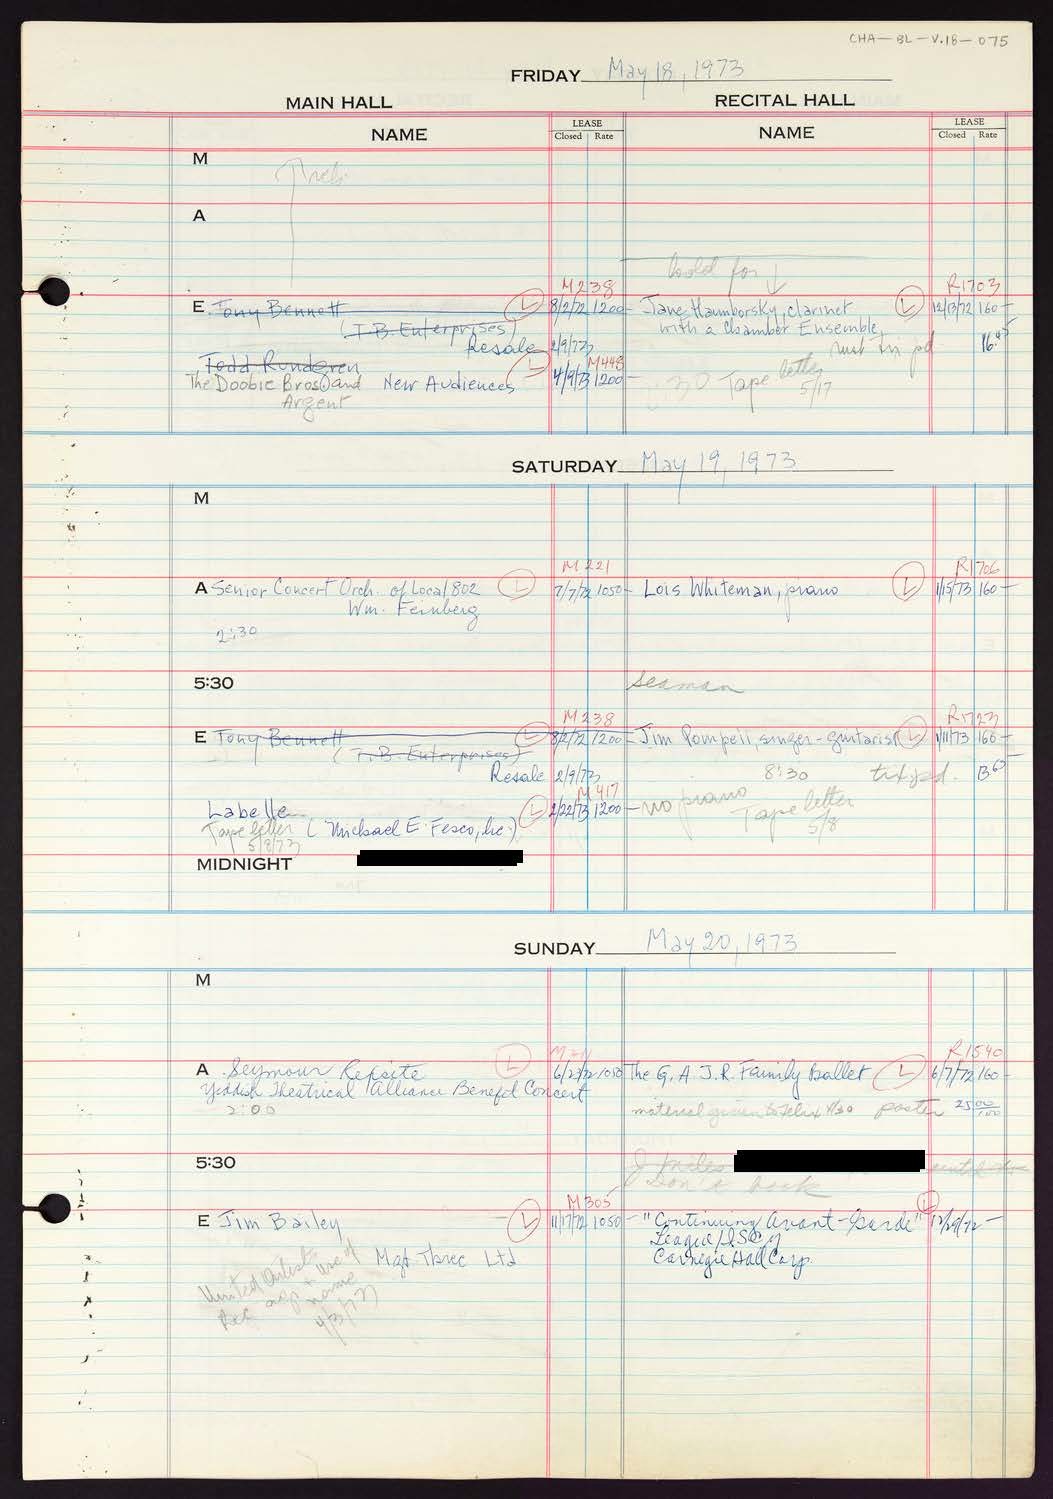 CHA-BL-V.18-075
FRIDAY May 18, 1973
MAIN HALL RECITAL HALL
NAME LEASE Closed Rate NAME LEASE Closed Rate
M
A
hold for
M238 R1703
E Tony Bennett L 8/2/72 1200- Jane Hamborsky, clarinet L 12/13/72 160-
(T.B. Enterprises) with a Chamber Ensemble,
Resale 2/9/73 pd
Todd Rundgren L M448
The Doobie Bros and New Audiences 4/9/73 1200- Tape letter
Argent 5/17
SATURDAY May 19, 1973
M
M221 R1706
A Senior Concert Orch. of Local 802 L 7/7/72 1050- Lois Whiteman, piano L 1/15/73 160-
Wm. Feinberg
2:30
5:30 Seaman
M238 R1723
E Tony Bennett L 8/2/72 1200- Jim Pompeii, singer-guitarist L 1/11/73 160-
(T.B. Enterprises)
Resale 2/9/73 8:30 tix pd.
M417
Labelle L 2/22/73 1200- no piano Tape letter
Tape letter (Michael E. Fesco, Inc.) 5/8
5/8/73
MIDNIGHT
SUNDAY May 20, 1973
M
R1540
A Seymour Rexsite L 6/23/72 1050 The G. A. J. R. Family Ballet L 6/7/72 160-
Yiddish Theatrical Alliance Benefit Concert
2:00 material given to Felix poster 25
5:30
Don't book
M305
E Jim Bailey L 11/17/72 1050- "Continuing Avant-Garde" L 12/29/72 -
League/ISCM
Mgt. Three Ltd Carnegie Hall Corp.
United Artists use of
Rec name
4/3/73